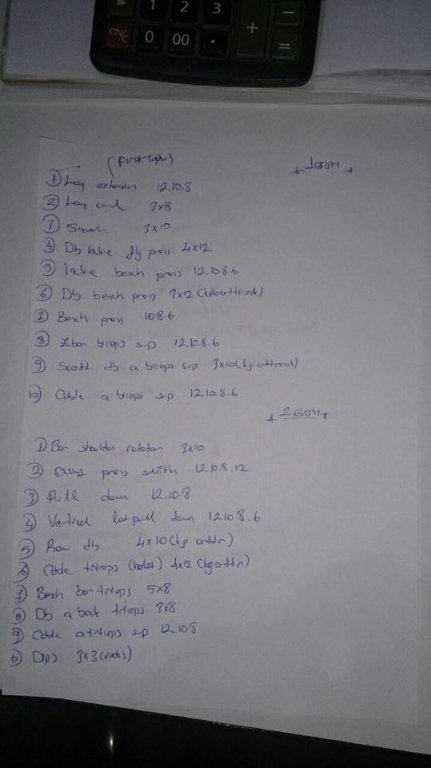 1 2 3
ON/C 0 00 . + =
−
1 GÜN
① Leg extension 12.10.8
② Leg curl 3x8
③ Squat 3x10
④ Db incline fly press 4x12
⑤ Incline bench press 12.10.8.6
⑥ Db bench press 3x12
⑦ Bench press 10.8.6
⑧ Z bar biceps sup 12.10.8.6
⑨ Scott db a biceps sup 3x10
⑩ Cable a biceps sup 12.10.8.6
2 GÜN
① Bar shoulder rotation 3x10
② press smith 12.10.8.12
③ Pull down 12.10.8
④ Vertical lat pull down 12.10.8.6
⑤ Row db 4x10
⑥ Cable triceps (halat) 4x12
⑦ Bench bar triceps 5x8
⑧ Db a back triceps 3x8
⑨ Cable a triceps sup 12.10.8
⑩ Dips 3x3